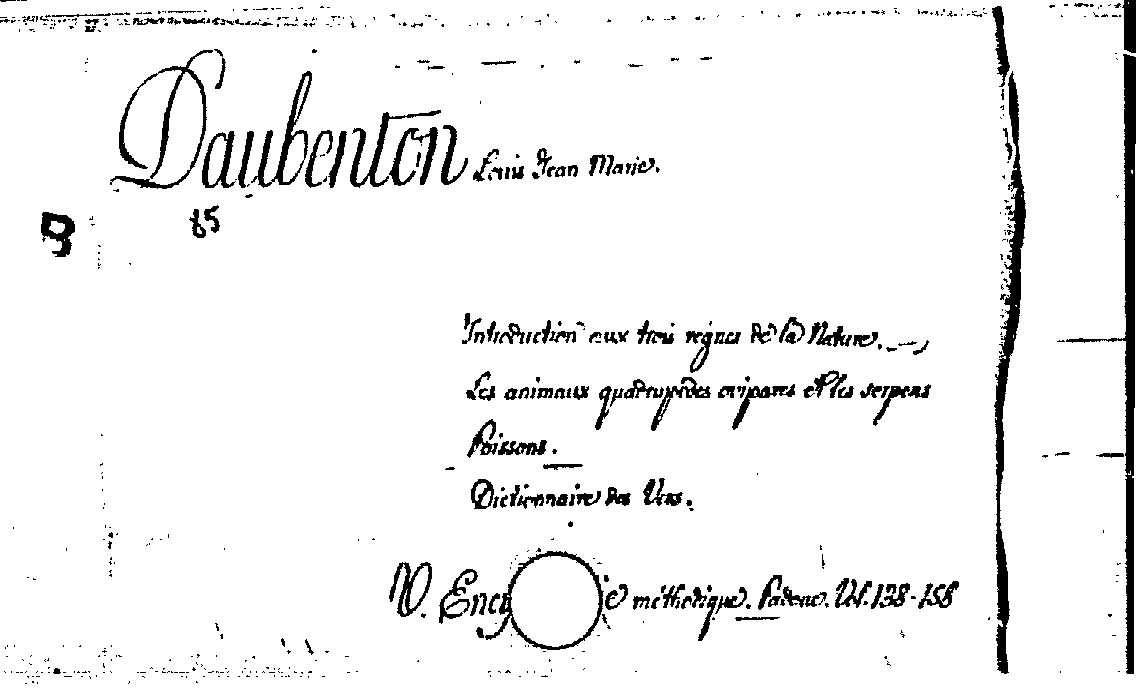 Daubenton Louis Jean Marie.
B 85
Introduction aux trois règnes de la Nature.
Les animaux quadrupèdes ovipares et les serpens
Poissons.
Dictionnaire des Vers.
V. Ency ie méthodique. Padoue. Vol. 138-158